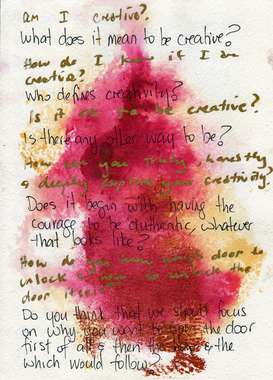 am I creative?
What does it mean to be creative?
How do I know if I am
creative?
Who defines creativity?
Is it ok to be creative?
Is there any other way to be?
How can you truly, honestly
& deeply explore your creativity?
Does it begin with having the
courage to be authentic, whatever
that looks like?
How do you know which door to
unlock & to unlock the
door itself
Do you think that we should focus
on why you want to open the door
first of all & then the how & the
which would follow?